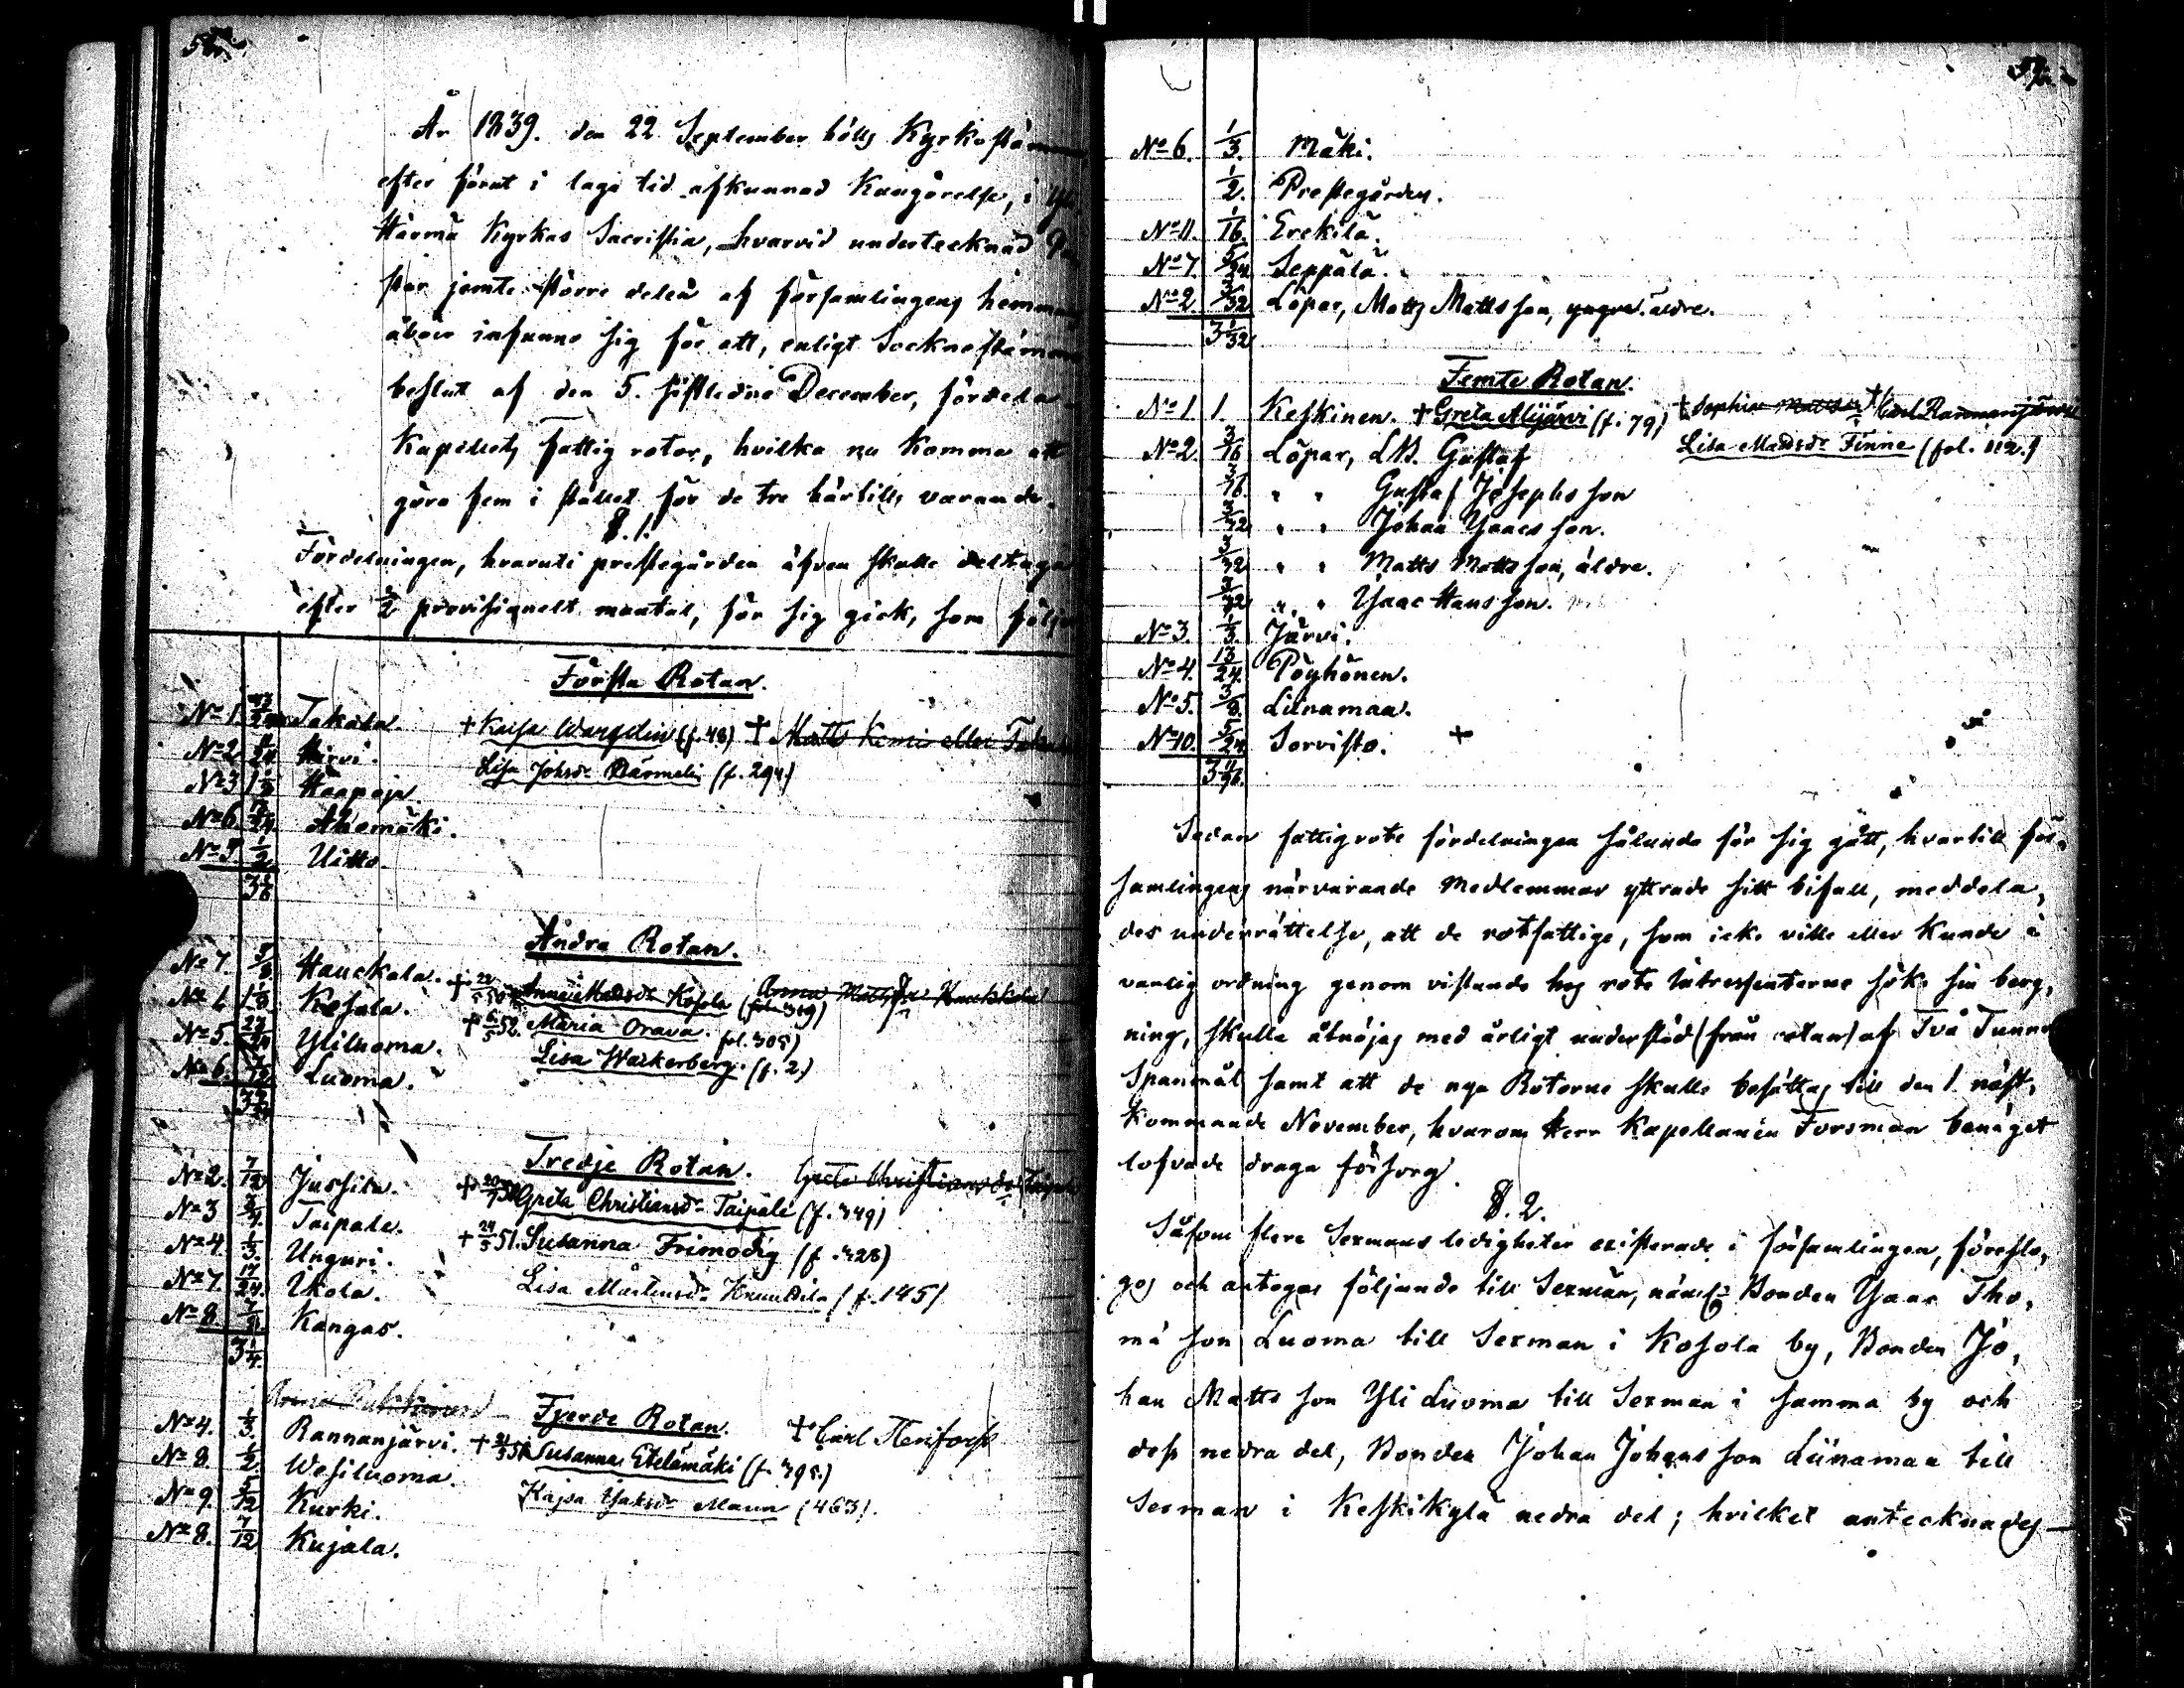 År 1839. den 22 September hölls Kyrkostämma
efter förut i laga tid afkunnad Kungörelse, i Yli
Härmä Kyrkas Sacristia, hvarvid undertecknad Pa
stor jemte större delen af församlingens hemmans
åboer infunno sig för att, enligt Sockne stämmo
beslut af den 5. sistledne December, fördela
Kapellets fattig rotor, hvilka nu komma att
göra fem i stället för de tre härtills varande.
§. 1.
Fördelningen, hvaruti prestegården äfven skulle deltaga
efter ½ provisionelt mantal, för sig gick, som följer
Första Rotan.
No 1. Takala. + Kajsa Wargelin (f. 48) + Matts Kenni eller Takala
No 2. Hirvi. Lisa Johsdr Bärmelin (f. 294)
No 3 Haapoja
No 6. Ahomäki.
½ Uitto.
3
Andra Rotan.
No 7. Hauckala. + Anna Madsdr Kosola (fol. 319) Anna Mattsdr Hauckala
Kosola. + 6/5 52. Maria Orava. fol. 305)
No 5. Yliluoma. Lisa Warkerberg. (f. 2)
No 6. 7/12 Luoma.
Tredje Rotan. Greta Christiansdr Taipale
No 2. 7/12 Jussila. + Greta Christiansdr Taipale (f. 349)
No 3 Taipale. + 24/5 51. Susanna Frimodig (f. 328)
No 4. 1/3. Unguri. Lisa Mårtensdr Knuutila (f. 145)
No 7. 17/24. Ikola.
No 8 Kangas.
3 1/4.
Fjerde Rotan. + Carl Stenfors
No 4. 1/3. Rannanjärvi. + Susanna Etelämäki (f. 395.)
No 8. 1/2 Wesiluoma. Kajsa Isaksdr Maun (463).
No 9. 5/12 Kurki.
No 8. 7/12 Kujala.
No 6. 1/3. Mäki.
1/2. Prestegården.
No 11. 1/16. Erckilä.
No 7. 5/24. Seppälä.
No 2 3/32 Löpar, Matts Mattsson, yngre. äldre.
3 1/32
Femte Rotan.
No 1 1. Keskinen. + Greta Alijärvi (f. 79) + Sophia Mattsdr + Carl Rannanjärvi
No 2. 3/16 Löpar, LB. Gustaf Lisa Madsdr Finne (fol. 112.)
3/16. " " Gustaf Josephsson
3/32 " " Johan Isaacsson.
3/32 " " Matts Mattsson, äldre.
3/32 " " Isaac Hansson.
No 3. 1/3. Järvi.
No 4. 13/24. Pöyhönen.
No 5. 3/8. Liinamaa.
No 10. 5/24 Sorvisto. +
3 11/96.
Sedan fattigrote fördelningen sålunda för sig gått, hvartill för-
samlingens närvarande Medlemmar yttrade sitt bifall, meddela-
des underrättelse, att de rotfattige, som icke ville eller kunde i
vanlig ordning genom vistande hos rote intressenterne söka sin berg-
ning, skulle åtnöjas med årligt understöd (från rotan) af Två Tunnor
Spanmål samt att de nya Rotorne skulle besättas till den 1. näst-
kommande November, hvarom Herr Kapellanen Forsman benäget
lofvade draga försorg.
§. 2.
Såsom flere Sexmans ledigheter existerade i församlingen, föreslo-
gos och antogos följande till Sexmän, näml. Bonden Isaac Tho-
mäson Luoma till Sexman i Kosola by, Bonden Jo-
han Mattsson Yli Luoma till Sexman i samma by och
dess nedra del, Bonden Johan Johansson Liinamaa till
Sexman i Keskikylä nedra del; hvilket antecknades —